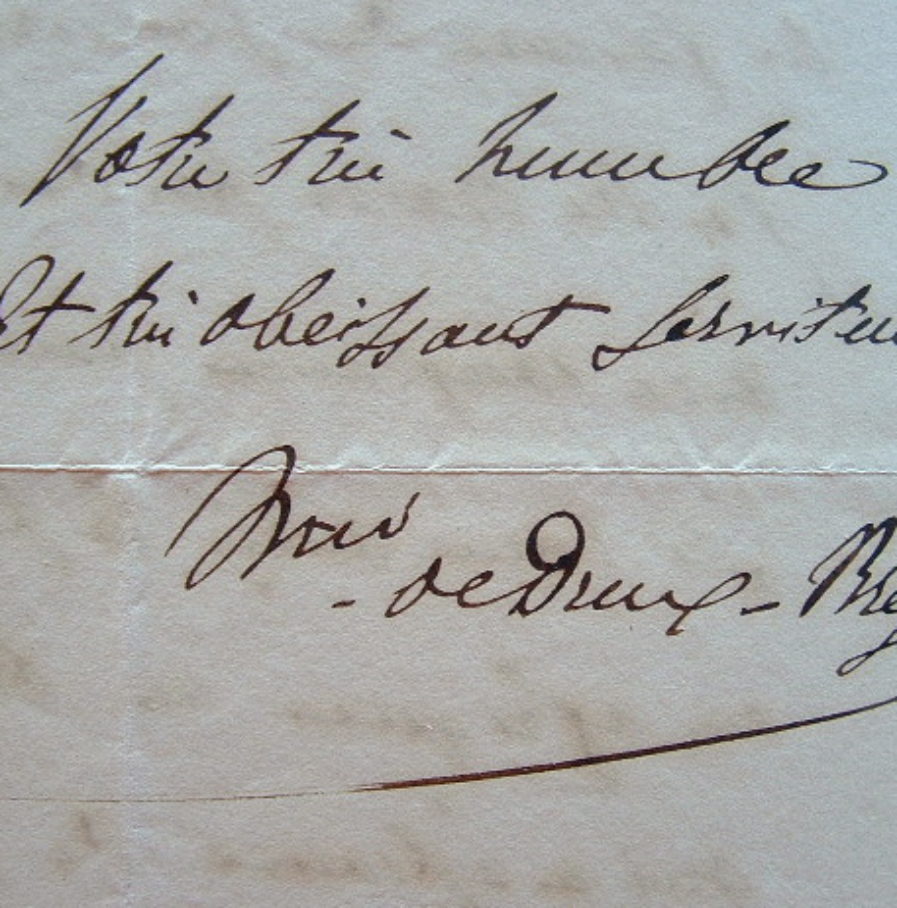 Votre très humble
Et très obeissant Serviteu
Mis
- de Dreux - Bré